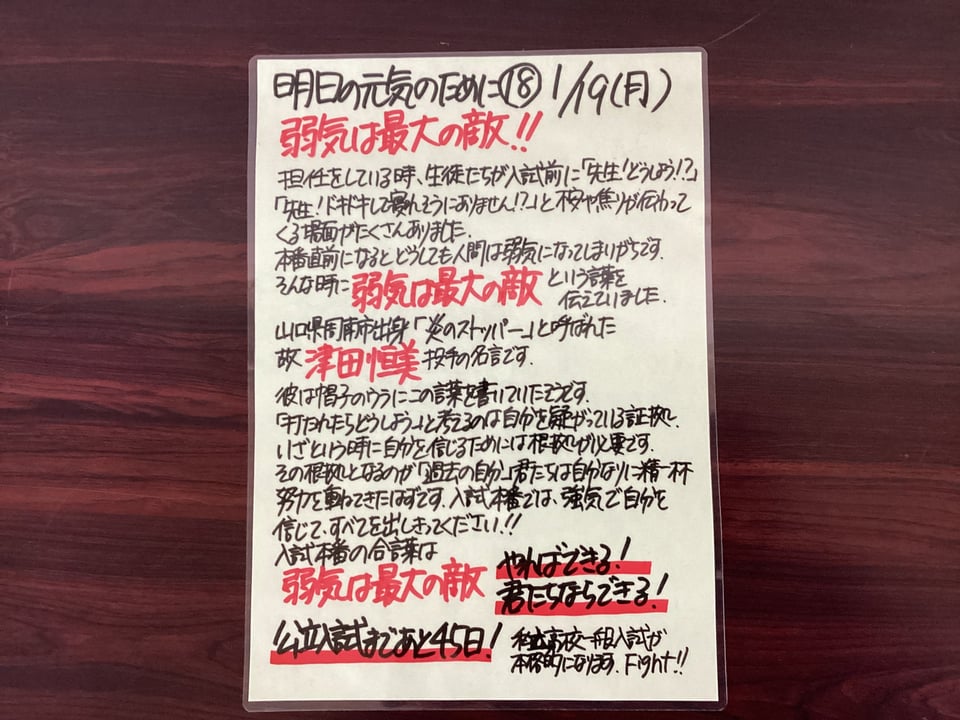 明日の元気のために⑱ 1/19(月)
弱気は最大の敵!!
担任をしている時、生徒たちが入試前に「先生!どうしよう!?」
「先生!ドキドキして寝れそうにありません!?」と不安や焦りが伝わって
くる場面がたくさんありました。
本番直前になるとどうしても人間は弱気になってしまいがちです。
そんな時に 弱気は最大の敵 という言葉を
伝えていました。
山口県周南市出身「炎のストッパー」と呼ばれた
故 津田恒美 投手の名言です。
彼は帽子のウラにこの言葉を書いていたそうです。
「打たれたらどうしよう」と考えるのは自分を疑がっている証拠。
いざという時に自分を信じるためには根拠が必要です。
その根拠となるのが「過去の自分」君たちは自分なりに精一杯
努力を重ねてきたはずです。入試本番では、強気で自分を
信じて、すべてを出しきってください!!
入試本番の合言葉は
弱気は最大の敵 やればできる!
君たちならできる!
公立入試まであと45日! 私立高校一般入試が
本格的になります。Fight!!